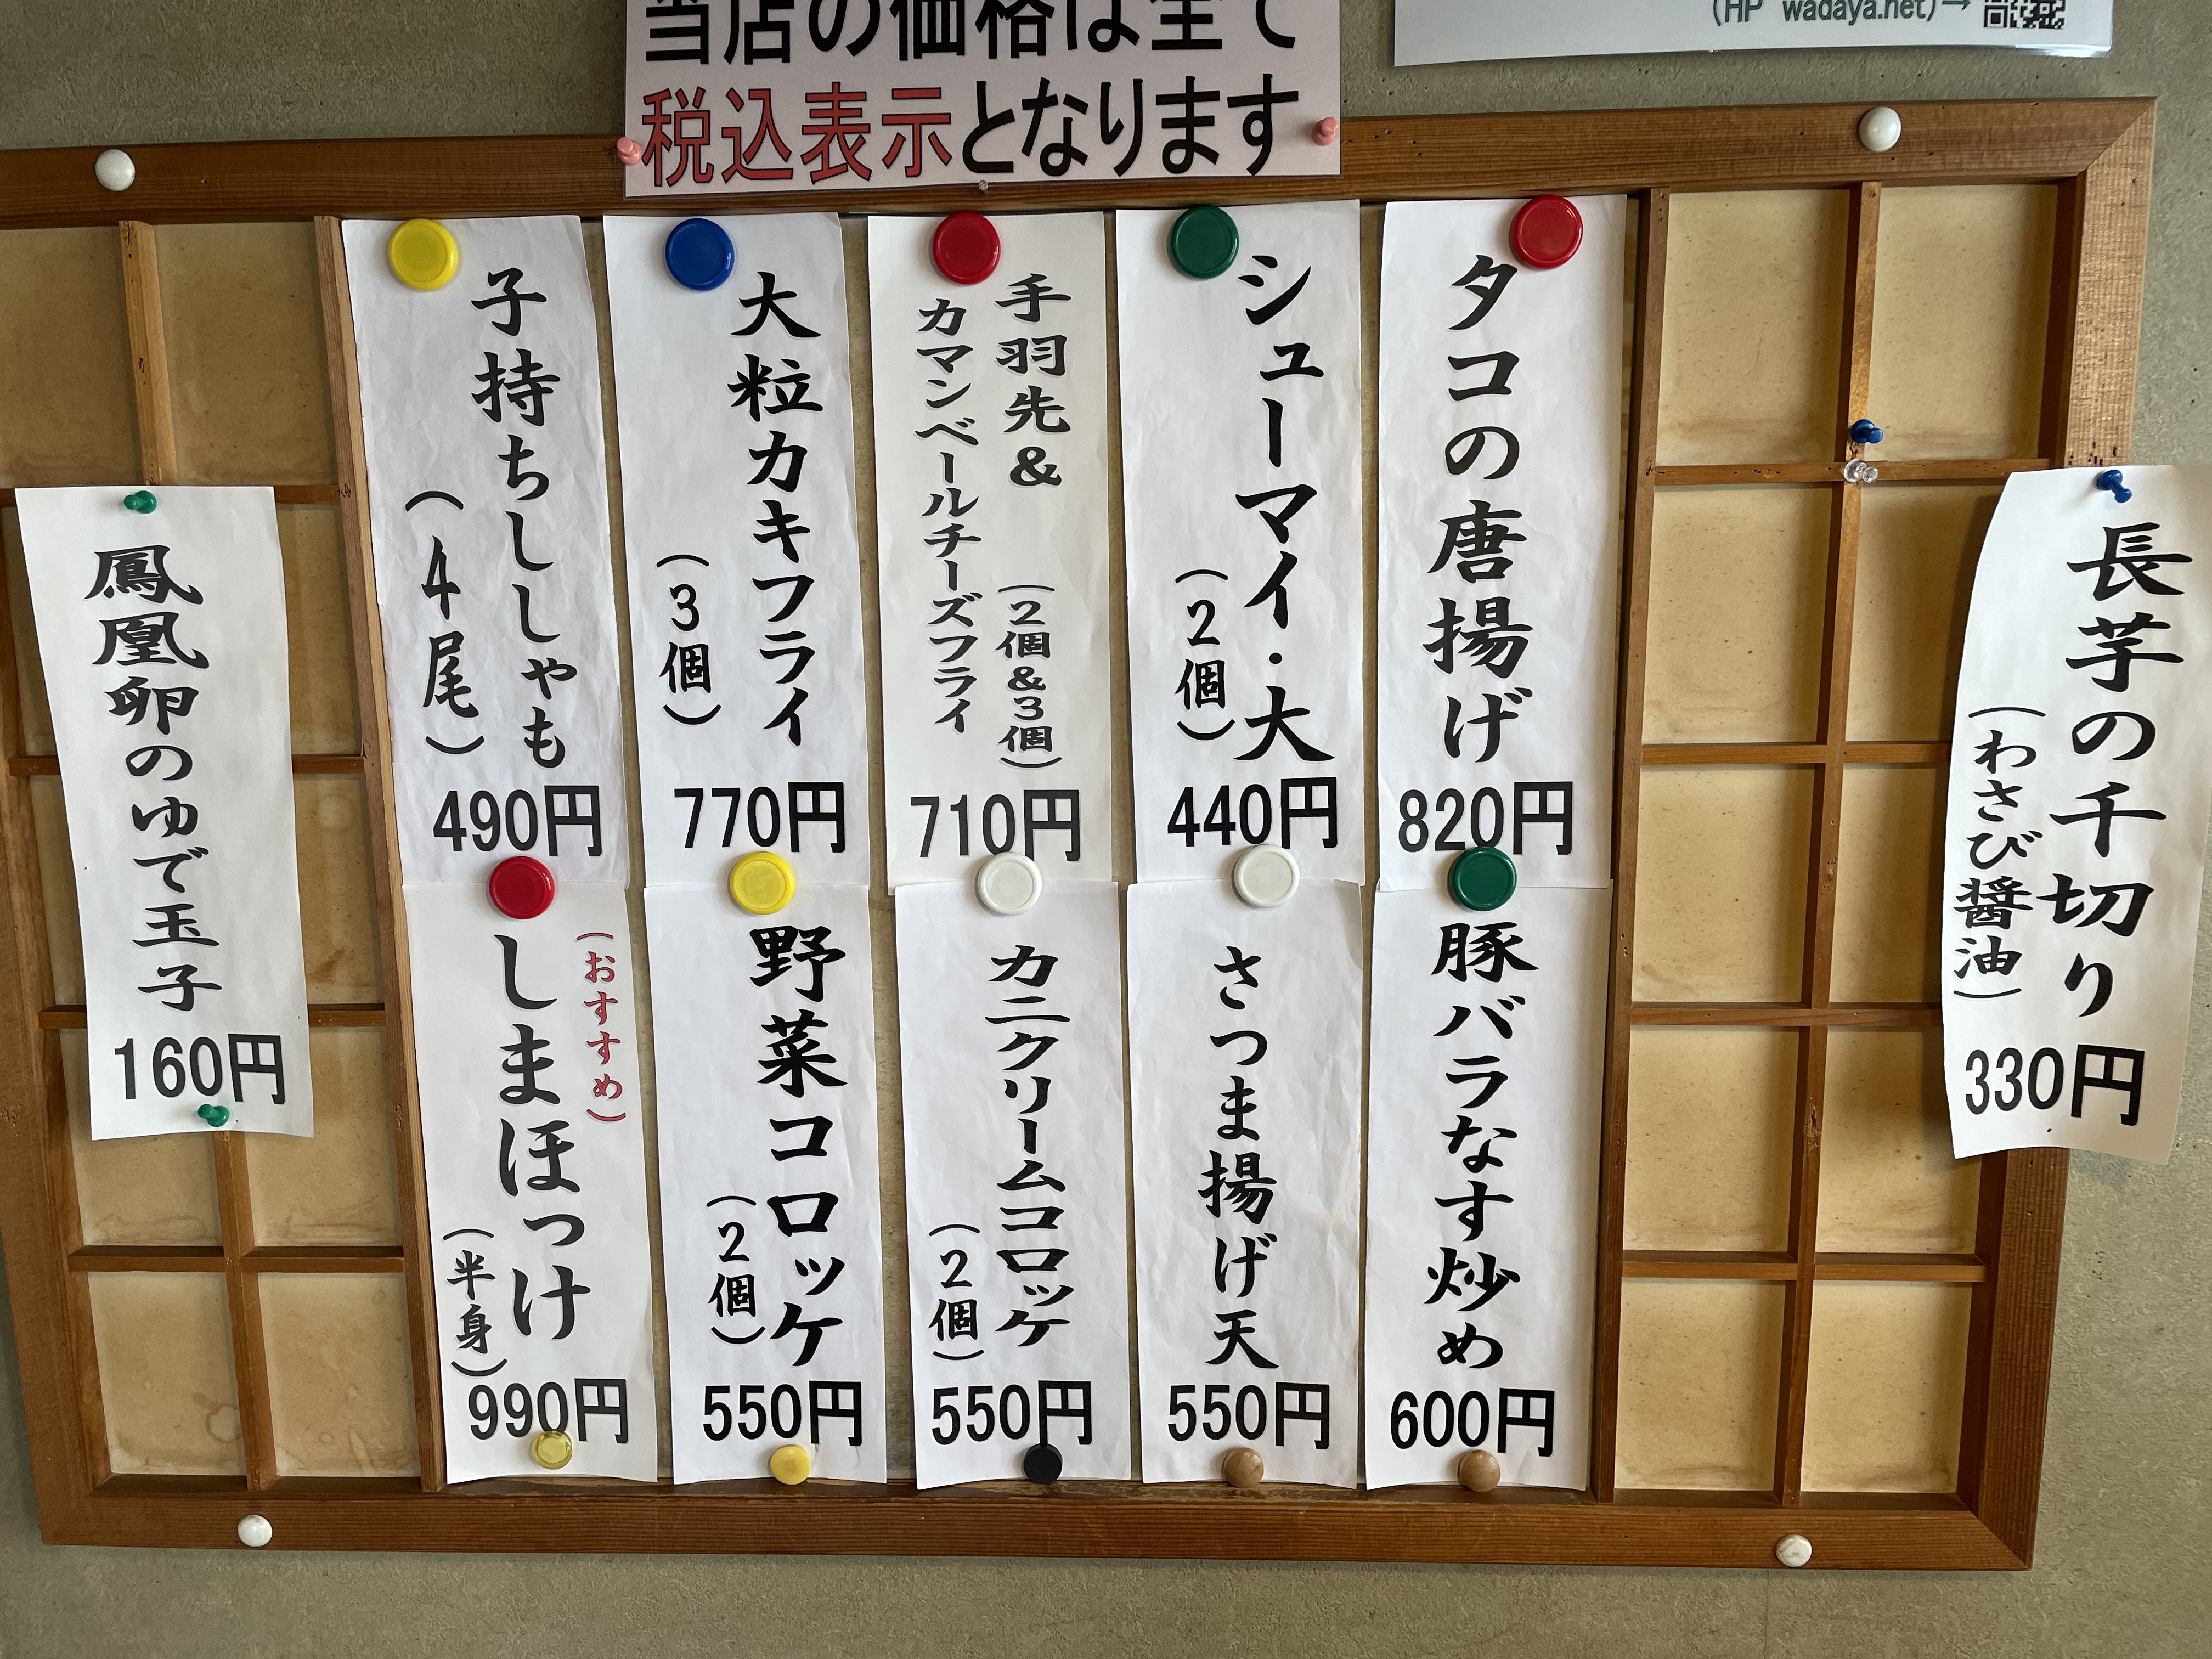 当店の価格は全て
税込表示となります
(HP wadaya.net)→
長芋の千切り
(わさび醤油)
330円
タコの唐揚げ
820円
シューマイ・大
(2個)
440円
手羽先& (2個&3個)
カマンベールチーズフライ
710円
大粒カキフライ
(3個)
770円
子持ちししゃも
(4尾)
490円
豚バラなす炒め
600円
さつま揚げ天
550円
カニクリームコロッケ
(2個)
550円
野菜コロッケ
(2個)
550円
(おすすめ)
しまほっけ
(半身)
990円
鳳凰卵のゆで玉子
160円